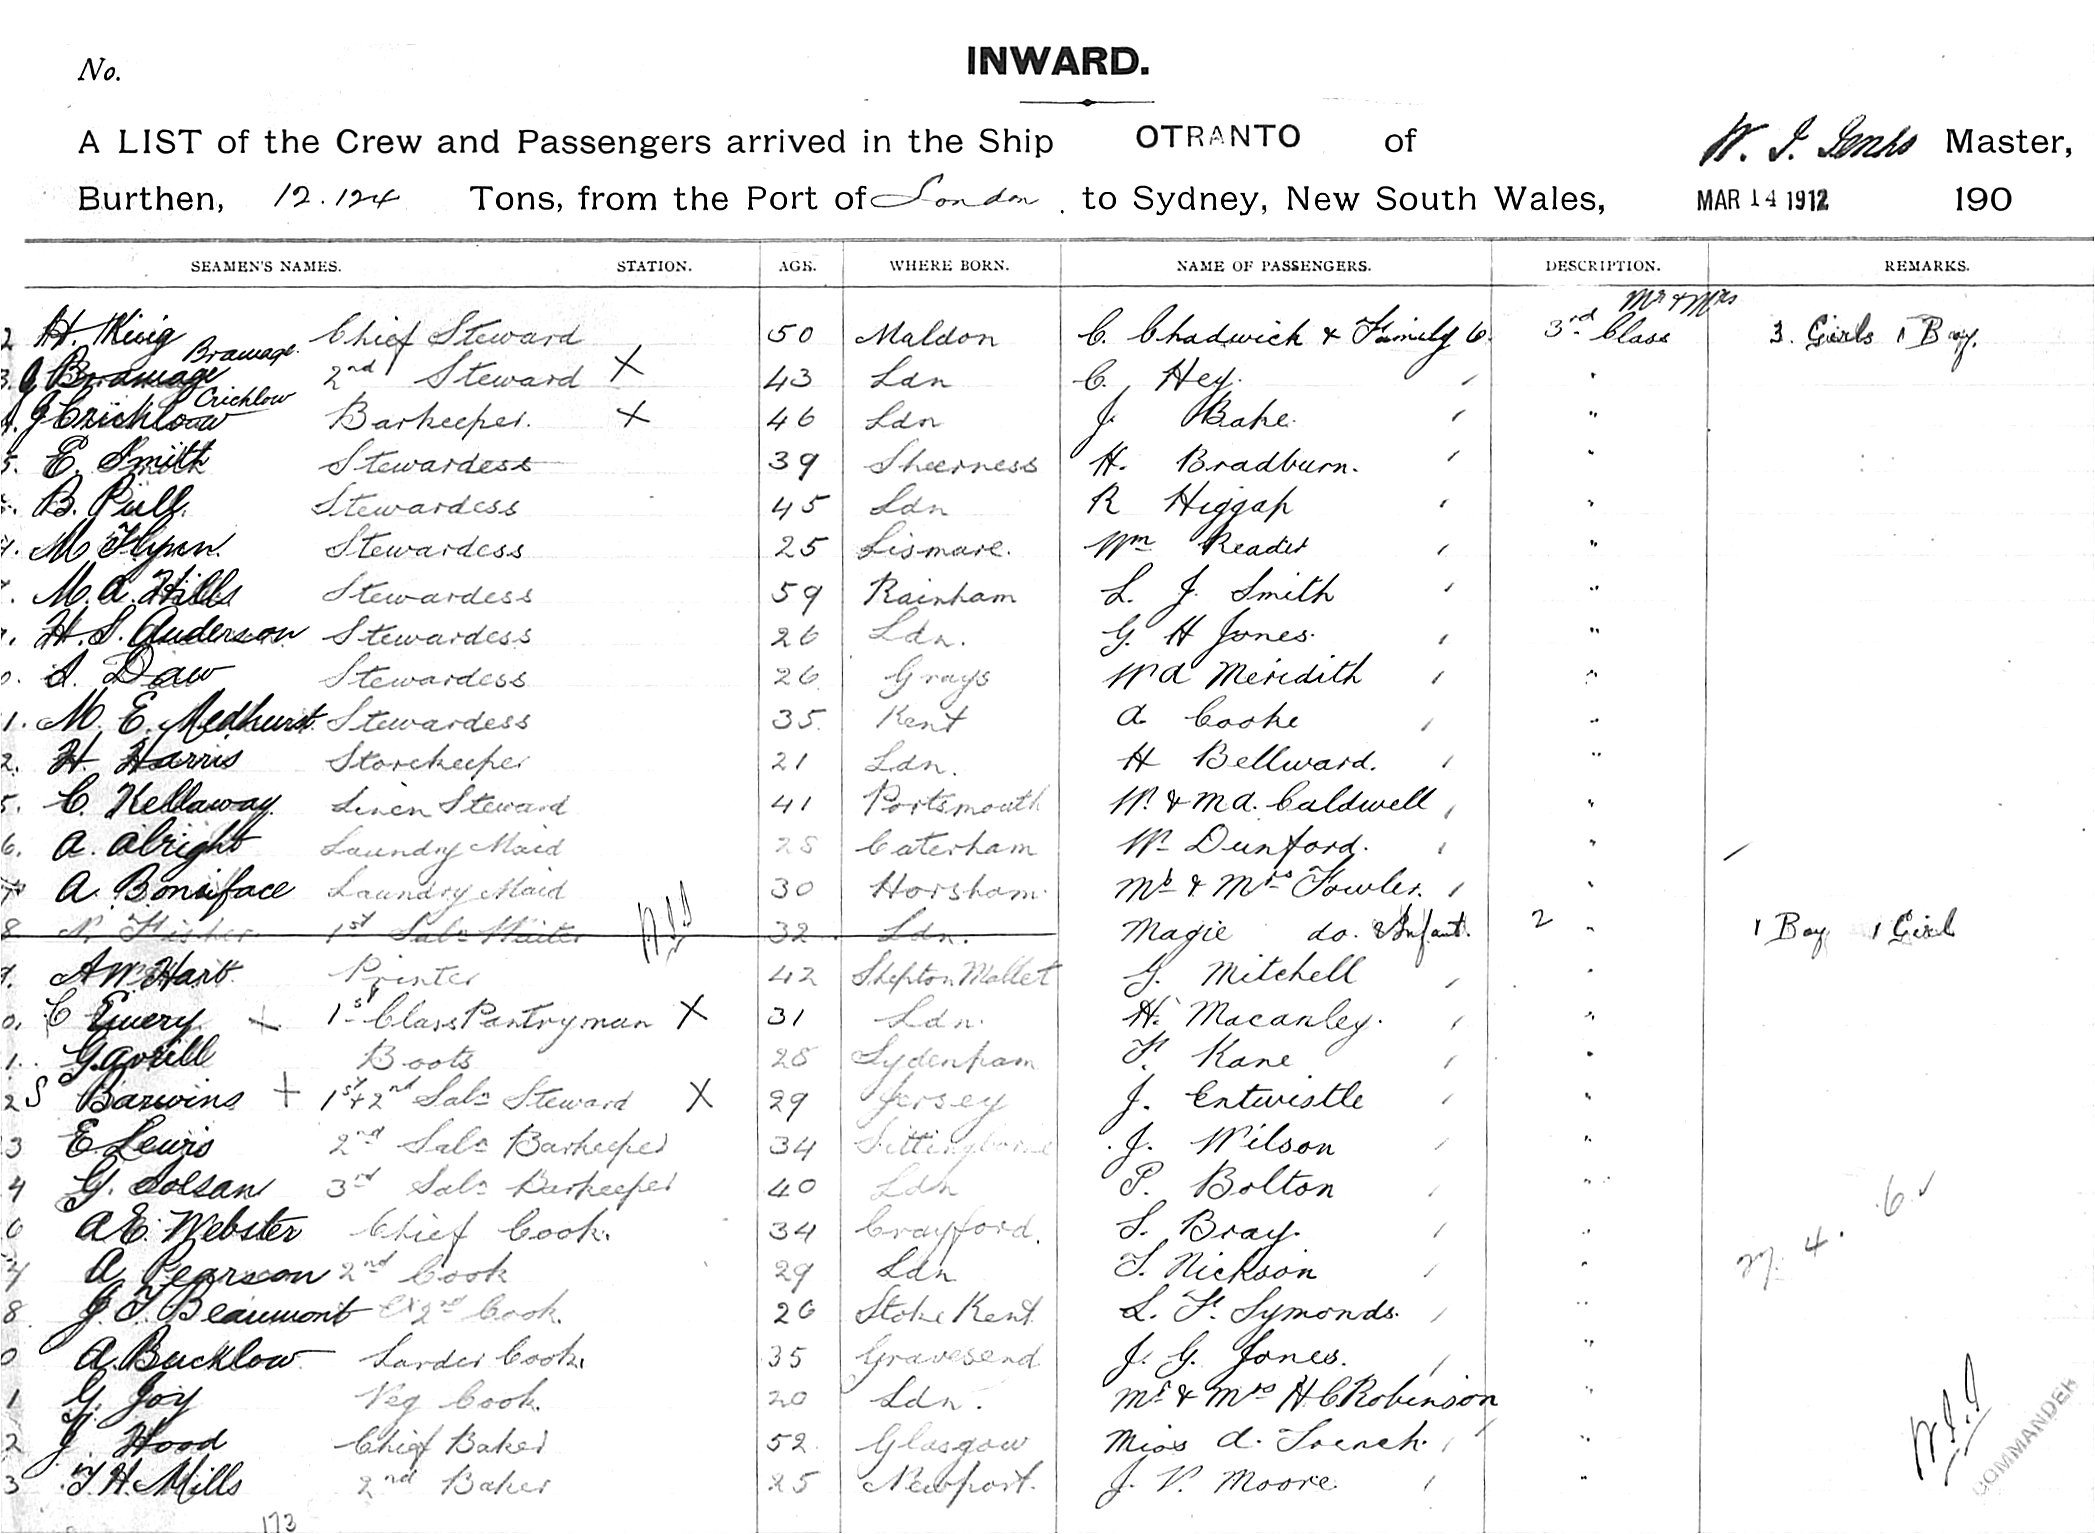 No.
INWARD.
A LIST of the Crew and Passengers arrived in the Ship OTRANTO of W. J. Jenks Master,
Burthen, 12.124 Tons, from the Port of London. to Sydney, New South Wales, MAR 14 1912 190
SEAMEN'S NAMES. STATION. AGE. WHERE BORN. NAME OF PASSENGERS. DESCRIPTION. REMARKS.
Mr & Mrs
2 H. King Chief Steward 50 Maldon C. Chadwick & Family 6. 3rd Class 3. Girls 1 Boy.
Brawage.
3. J Brawage 2nd Steward X 43 Ldn C. Hey. ' "
Crichlow
4. J Crichlow Barkeeper. X 46 Ldn J. Bake. ' "
5. E. Smith Stewardess 39 Sheerness H. Bradburn. ' "
B. Pull. Stewardess 45 Ldn R Higgap ' "
7. M Flynn. Stewardess 25 Lismare. Wm Reader ' "
M. A. Hills Stewardess 59 Rainham L. J. Smith ' "
H. S. Anderson Stewardess 26 Ldn. G. H Jones. ' "
0. A. Daw Stewardess 26. Grays W A Meridith ' "
1. M. E. Medhurst Stewardess 35. Kent A Cooke ' "
2. H Harris Storekeeper 21 Ldn. H Bellward. ' "
5. C. Kellaway. Linen Steward 41 Portsmouth W. & M A. Caldwell ' "
6. A. Albright Laundry Maid 28 Caterham Wm Dunford. ' "
7 A. Boniface Laundry Maid 30 Horsham. Mr & Mrs Fowler. ' "
8 N. Fisher 1st Saln Waiter WJJ 32 Ldn. Magie do. & Infant. 2 " 1 Boy 1 Girl
9. A W. Hart. Printer 42 Shepton Mallet G. Mitchell ' "
0. C Emery X 1st Class Pantryman X 31 Ldn. H. Macanley. ' "
1. G. Avrill Boots 28 Sydenham F. Kane ' "
2 S Barwins + 1st & 2nd Saln Steward X 29 Jersey J. Entwistle ' "
3 E Lewis 2nd Saln Barkeeper 34 Sittingborne J. Wilson ' "
4 G. Dolsan 3rd Saln Barkeeper 40 Ldn P. Bolton ' "
6 A E. Webster Chief Cook. 34 Crayford. S. Bray. ' "
7 A Pearson 2nd Cook 29 Ldn T. Nickson ' "
8. J. T. Beaumont Ex 2nd Cook. 26 Stoke Kent L. F. Symonds. ' "
0 A. Bucklow Larder Cook. 35 Gravesend J. G. Jones. ' "
1 G. Joy Veg Cook. 20 Ldn. Mr & Mrs H C Robinson "
2 J. Hood Chief Baker 52. Glasgow Miss A. French. ' "
3 T. H. Mills 2nd Baker 25 Newport. J. V. Moore. ' "
4. 6
WJJ
COMMANDER
173